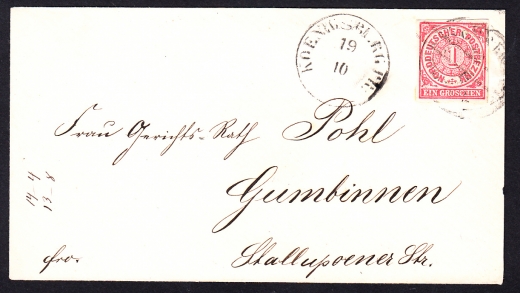 KOENIGSBERG PR.
19
10
NORDDEUTSCHER POSTBEZIRK
1
EIN GROSCHEN
Frau Gerichts-Rath Pohl
Gumbinnen
Stallupoener Str.
fro.
14-4
13-8